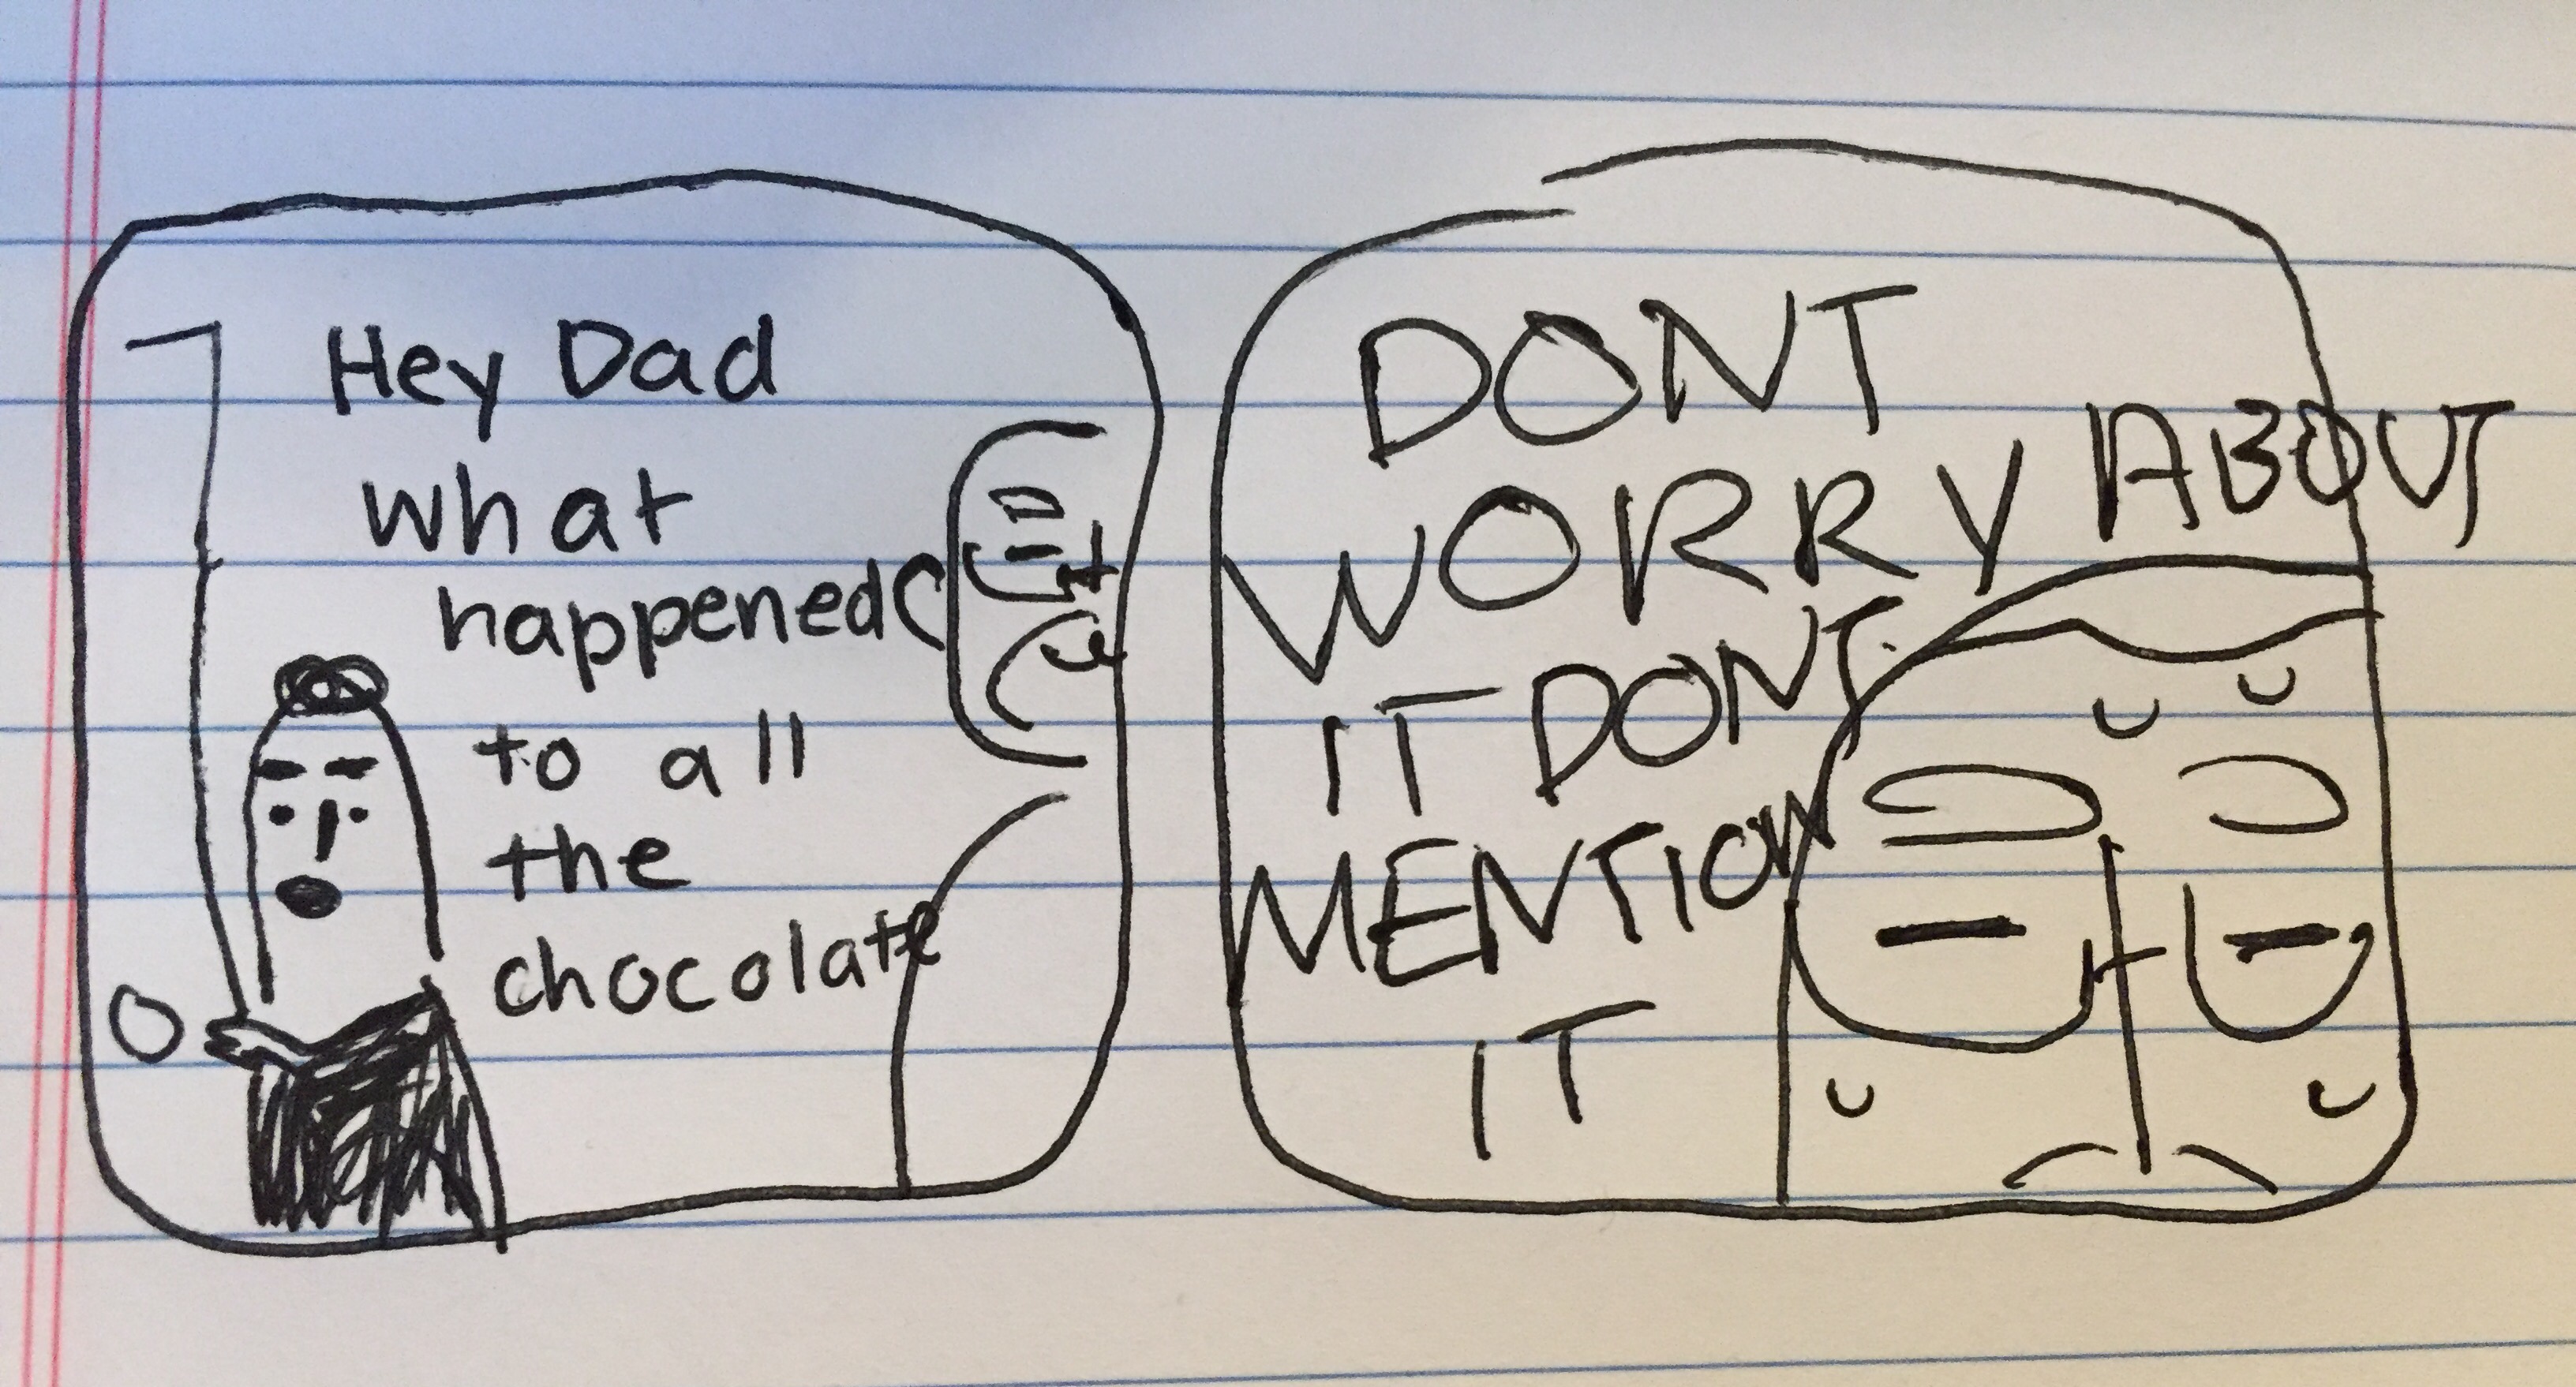 Hey Dad
what
happened
to all
the
chocolate
DONT
WORRY ABOUT
IT DONT
MENTION
IT